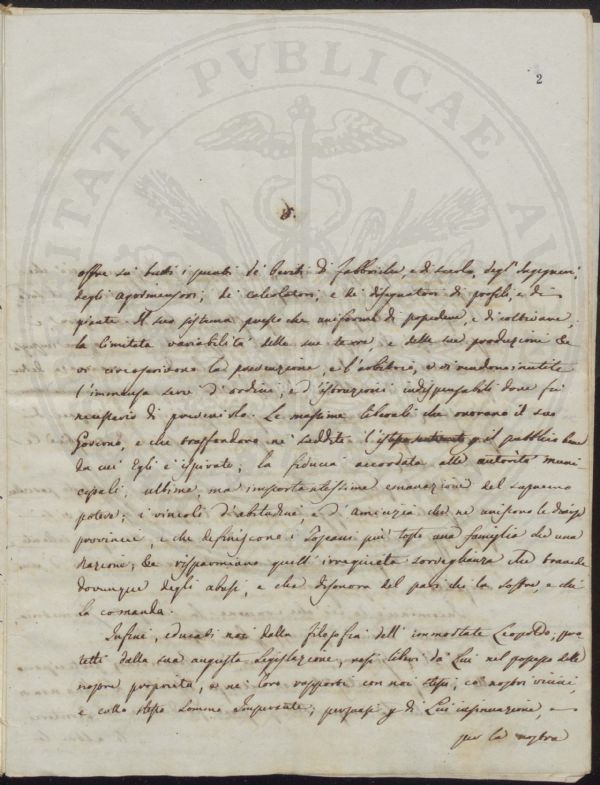 VTILITATI PVBLICAE
2
offre su tutti i punti de' Periti di fabbriche, e di suolo, degl' Ingegneri,
degli agrimensori, de' calcolatori, e de' disegnatori di profili, e di
piante. Il suo sistema pressoche uniforme di possedere, e di coltivare,
la limitata variabilità delle sue terre, e delle sue produzioni
vi circoscrivono la prevenzione, e l'arbitrio, e vi rendono inutile
l'immensa serie d'ordini, e d'istruzioni indispensabili dove fu
necessario di prescriverlo. Le massime liberali che onorano il suo
Governo, e che trasfondono ne' sudditi il pubblico bene
da cui Egli è ispirato; la fiducia accordata alle autorità muni
cipali, ultima, ma importantissima emanazione del supremo
potere; i vincoli d'abitudine, e d'amicizia che ne uniscono le diverse
provincie e che definiscono i Toscani più tosto una famiglia che una
Nazione; risparmiano quell' irrequieta sorveglianza che
dovunque degli abusi, e che disonora del pari chi la soffre, e chi
la comanda.
Infine, educati noi dalla filosofia dell' immortale Leopoldo, pro
tetti dalla sua augusta Legislazione, resi liberi da Lui nel possesso delle
nostre proprietà, e ne' loro rapporti con noi stessi, co' nostri vicini
e collo stesso sommo Imperante; persuasi di Lui insinuazione, e
per la nostra